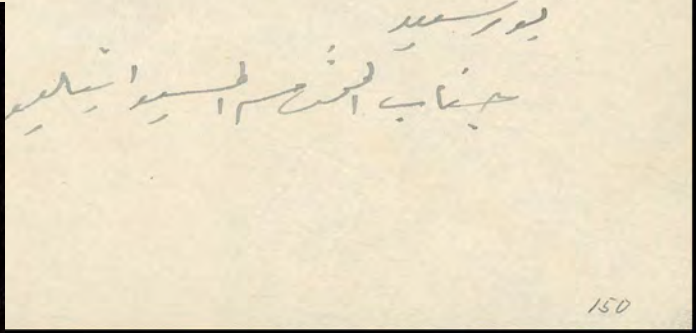 بورسعيد
جناب المحترم المسيو ايتاليو
150